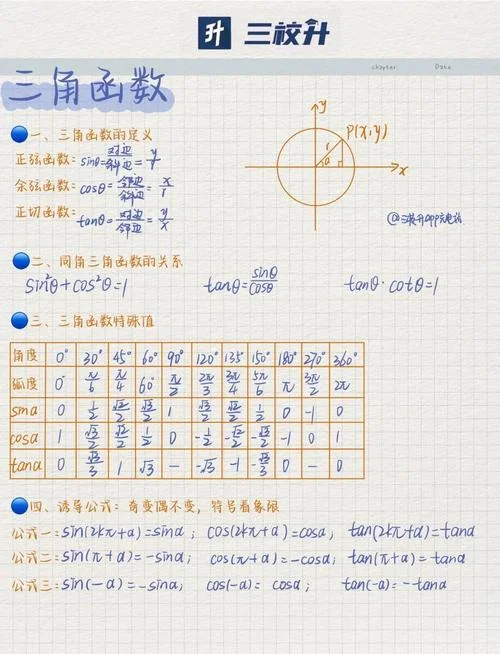 升 三校升
chapter Date
三角函数
一、三角函数的定义
正弦函数: sinθ=对边/斜边=y/r
余弦函数: cosθ=邻边/斜边=x/r
正切函数: tanθ=对边/邻边=y/x
y
P(x,y)
r
α
x
二、同角三角函数的关系
sin²θ+cos²θ=1 tanθ=sinθ/cosθ tanθ·cotθ=1
三、三角函数特殊值
角度 0° 30° 45° 60° 90° 120° 135° 150° 180° 270° 360°
弧度 0° π/6 π/4 60° π/2 2π/3 3π/4 5π/6 π 3π/2 2π
sinα 0 1/2 √2/2 √3/2 1 √3/2 √2/2 1/2 0 -1 0
cosα 1 √3/2 √2/2 1/2 0 -1/2 -√2/2 -√3/2 -1 0 1
tanα 0 √3/3 1 √3 - -√3 -1 -√3/3 0 - 0
四、诱导公式: 奇变偶不变, 符号看象限
公式一: sin(2kπ+α)=sinα; cos(2kπ+α)=cosα; tan(2kπ+α)=tanα
公式二: sin(π+α)=-sinα; cos(π+α)=-cosα; tan(π+α)=tanα
公式三: sin(-α)=-sinα; cos(-α)=cosα; tan(-α)=-tanα